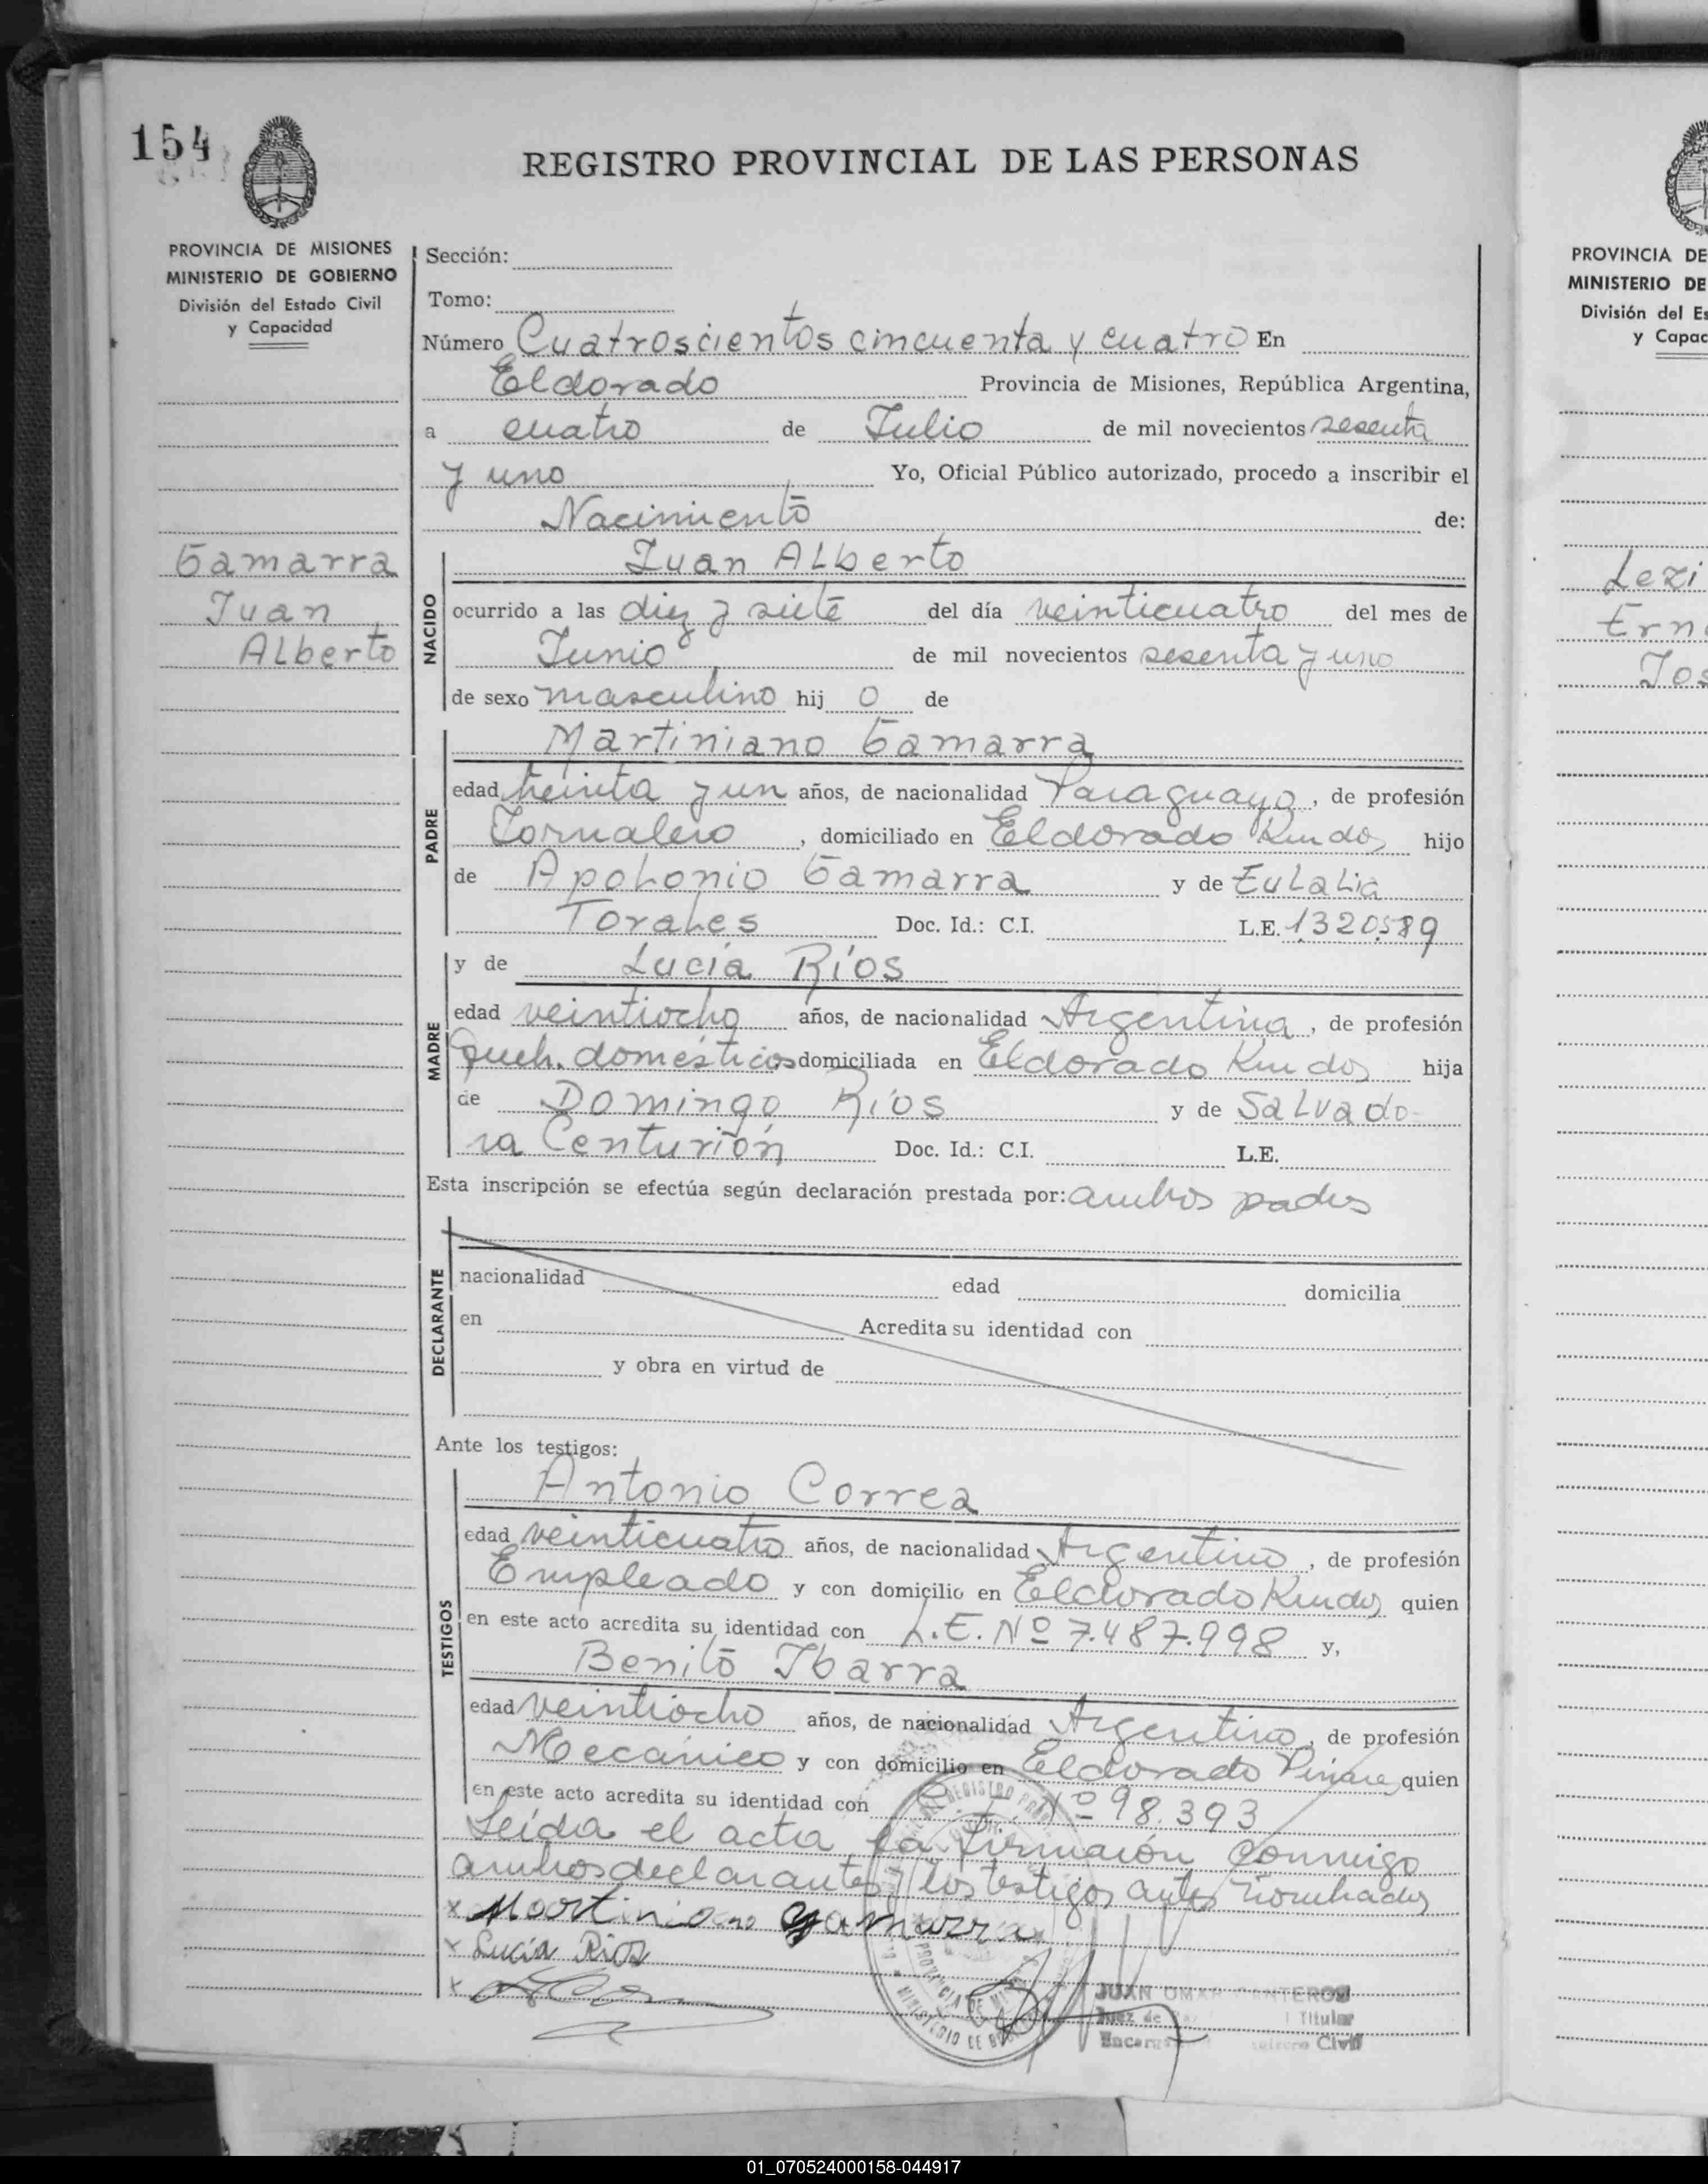 154
REGISTRO PROVINCIAL DE LAS PERSONAS
PROVINCIA DE MISIONES
MINISTERIO DE GOBIERNO
División del Estado Civil
y Capacidad
Gamarra
Juan
Alberto
Sección:
Tomo:
Número Cuatroscientos cincuenta y cuatro En
Eldorado Provincia de Misiones, República Argentina,
a cuatro de Julio de mil novecientos sesenta
y uno Yo, Oficial Público autorizado, procedo a inscribir el
Nacimiento de:
NACIDO
Juan Alberto
ocurrido a las diez y siete del día veinticuatro del mes de
Junio de mil novecientos sesenta y uno
de sexo masculino hij o de
PADRE
Martiniano Gamarra
edad treinta y un años, de nacionalidad Paraguayo, de profesión
Jornalero, domiciliado en Eldorado hijo
de Apolonio Gamarra y de Eulalia
Torales Doc. Id.: C.I. L.E. 1320589
MADRE
y de Lucía Ríos
edad veintiocho años, de nacionalidad Argentina, de profesión
Queh. domésticos domiciliada en Eldorado hija
de Domingo Ríos y de Salvado-
ra Centurión Doc. Id.: C.I. L.E.
Esta inscripción se efectúa según declaración prestada por: ambos padres
DECLARANTE
nacionalidad edad domicilia
en Acredita su identidad con
y obra en virtud de
Ante los testigos:
TESTIGOS
Antonio Correa
edad veinticuatro años, de nacionalidad Argentino, de profesión
Empleado y con domicilio en Eldorado quien
en este acto acredita su identidad con L.E. Nº 7.487.998 y,
Benito Ibarra
edad veintiocho años, de nacionalidad Argentino, de profesión
Mecánico y con domicilio en Eldorado quien
en este acto acredita su identidad con Nº 98.393
Leída el acta la firmaron conmigo
ambos declarantes y los testigos antes nombrados
x Martiniano gamarra
x Lucía Rios
x
JUAN OMAR CANTEROS
Juez de Titular
Civil
PROVINCIA DE
MINISTERIO DE
División del Es
y Capac
Lezi
Ern
Jos
01_070524000158-044917